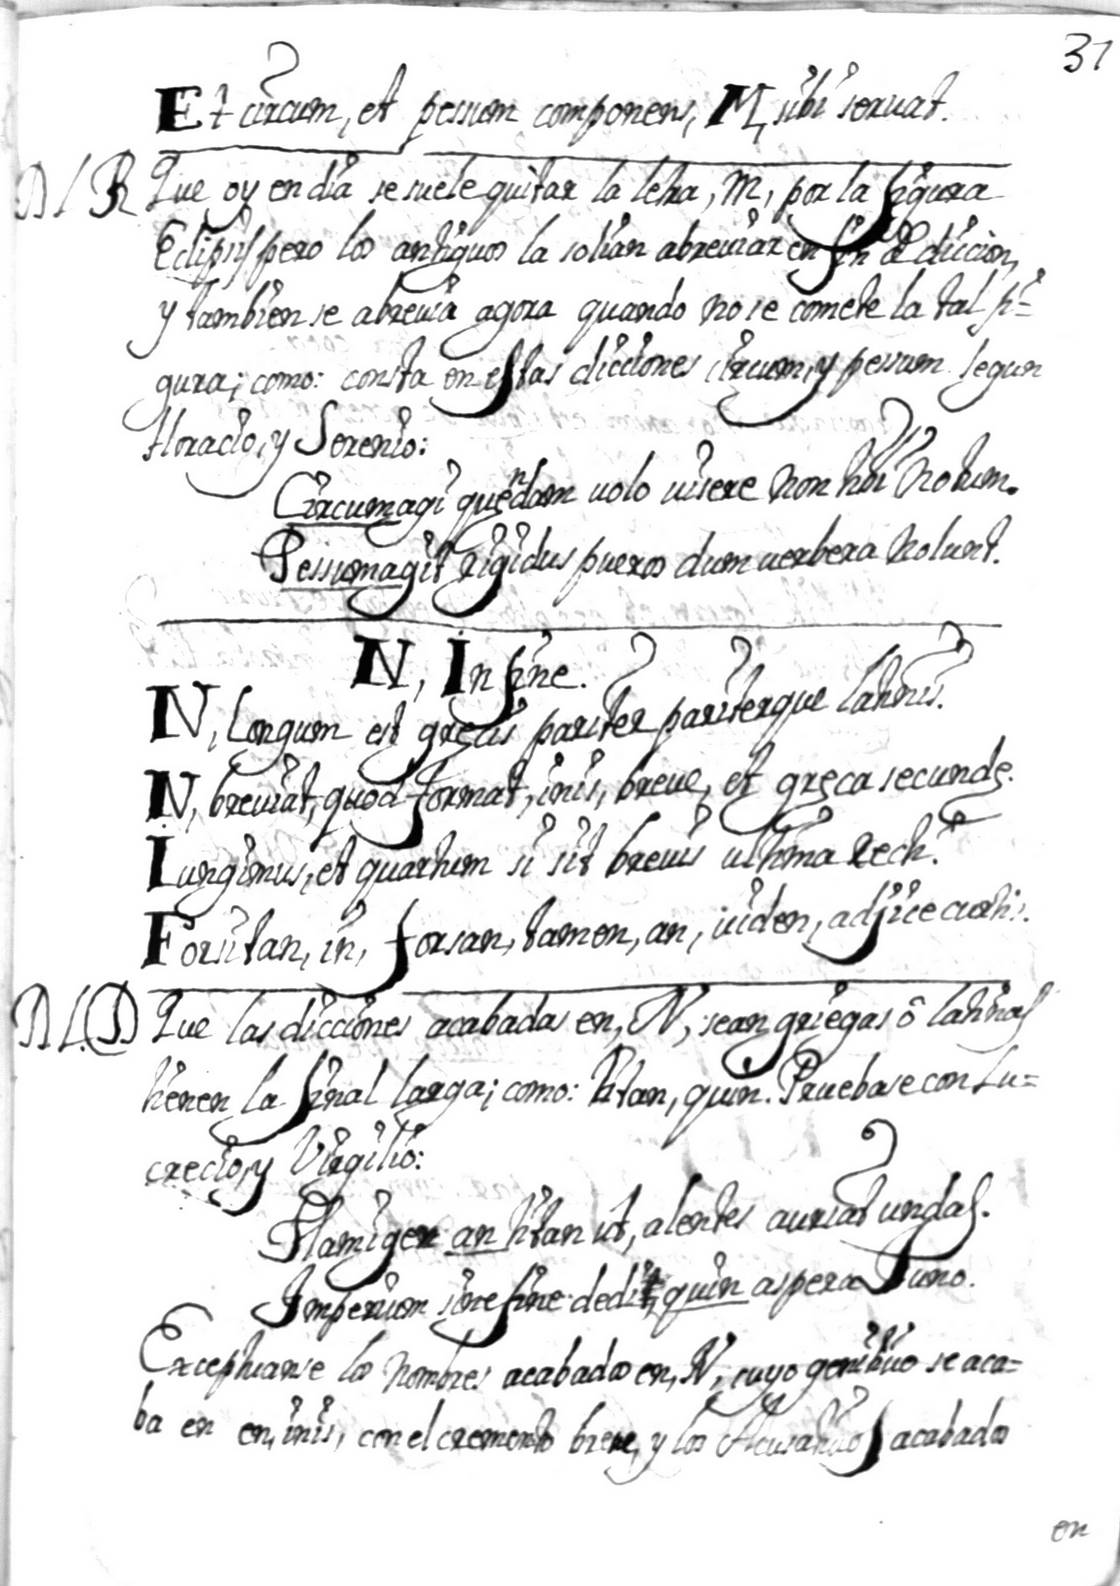 37
Et circum, et pessum componens, M, sibi seruat.
D/R Que oy en dia se suele quitar la letra, M, por la figura
Eclipsis pero los antiguos la solian abreuiar en fin de diccion,
y tambien se abreuia agora quando no se comete la tal fi=
gura; como: consta en estas dicciones circum, y pessum segun
Horacio, y Sorenio:
Circumagi quendam uolo uisere non tibi notum.
Pessumagit rigidus pueros dum uerbera nolunt.
N, In fine.
N, longum est gręcis pariter pariterque latinis.
N, breuiat, quod format, inis, breue, et gręca secundę.
Iungimus, et quartum si sit breuis ultima recti.
Forsitan, in, forsan, tamen, an, uiden, adjice curtis.
D/D Que las dicciones acabadas en, N, sean griegas ô latinas
tienen la final larga; como: Titan, quin. Pruebase con Lu=
crecio, y Virgilio:
Flamiger an titan ut, alentes auriat undas.
Imperium sine fine dedit, quin aspera Iuno.
Exceptuanse los nombres acabados en, N, cuyo genitiuo se aca=
ba en en, inis, con el cremento breue, y los Acusatiuos acabados
en